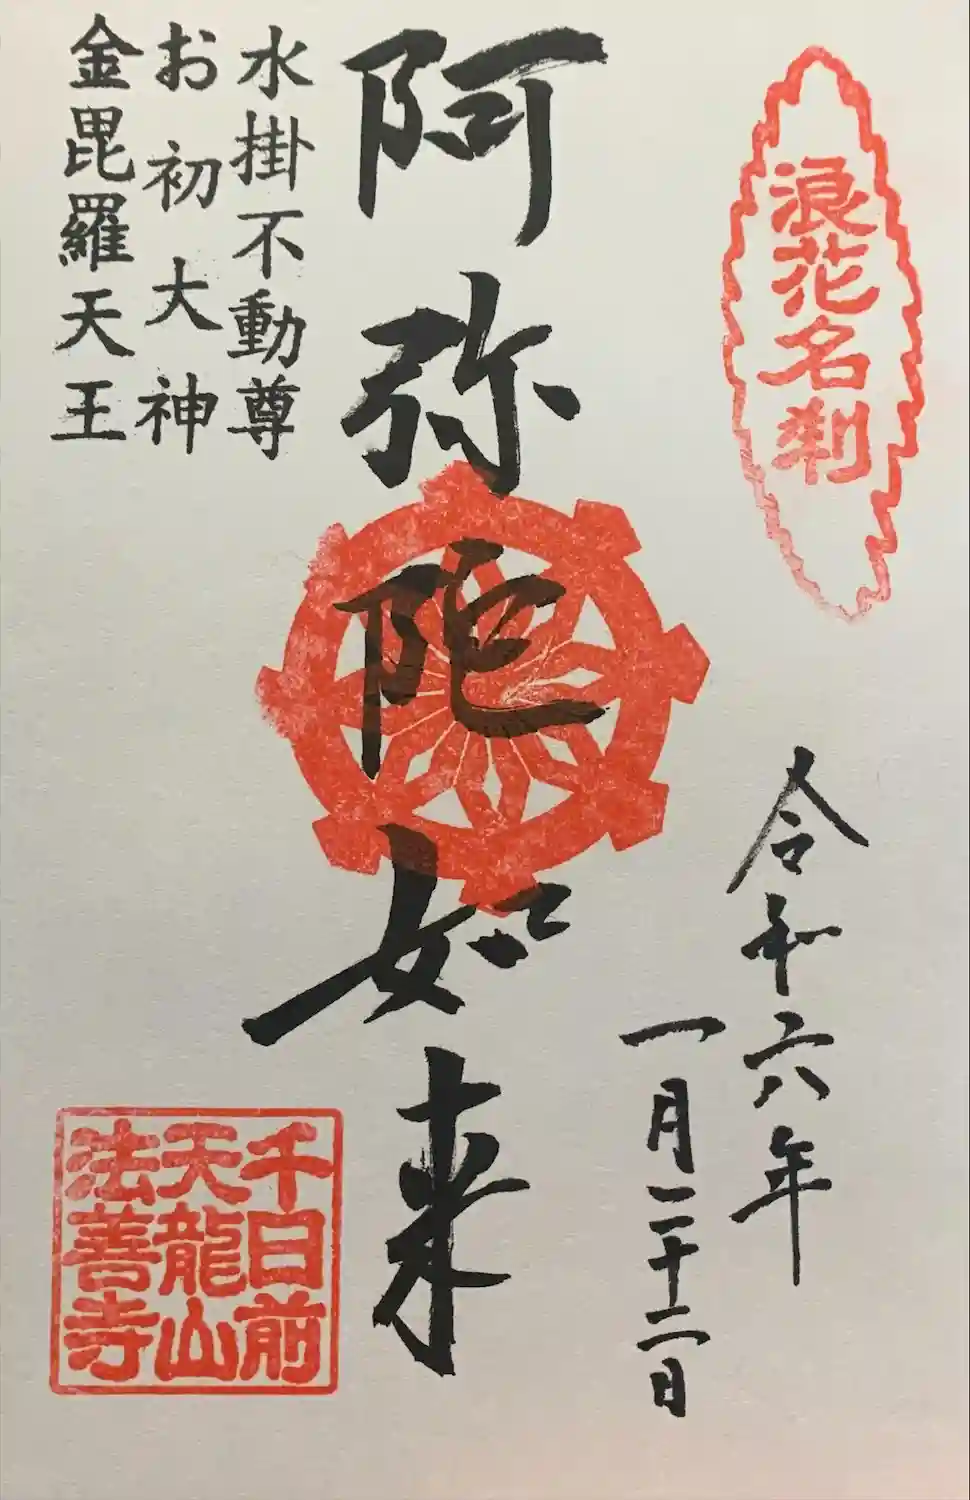 浪花名刹
令和六年
一月二十二日
阿弥陀如来
水掛不動尊
お初大神
金毘羅天王
千日前
天龍山
法善寺